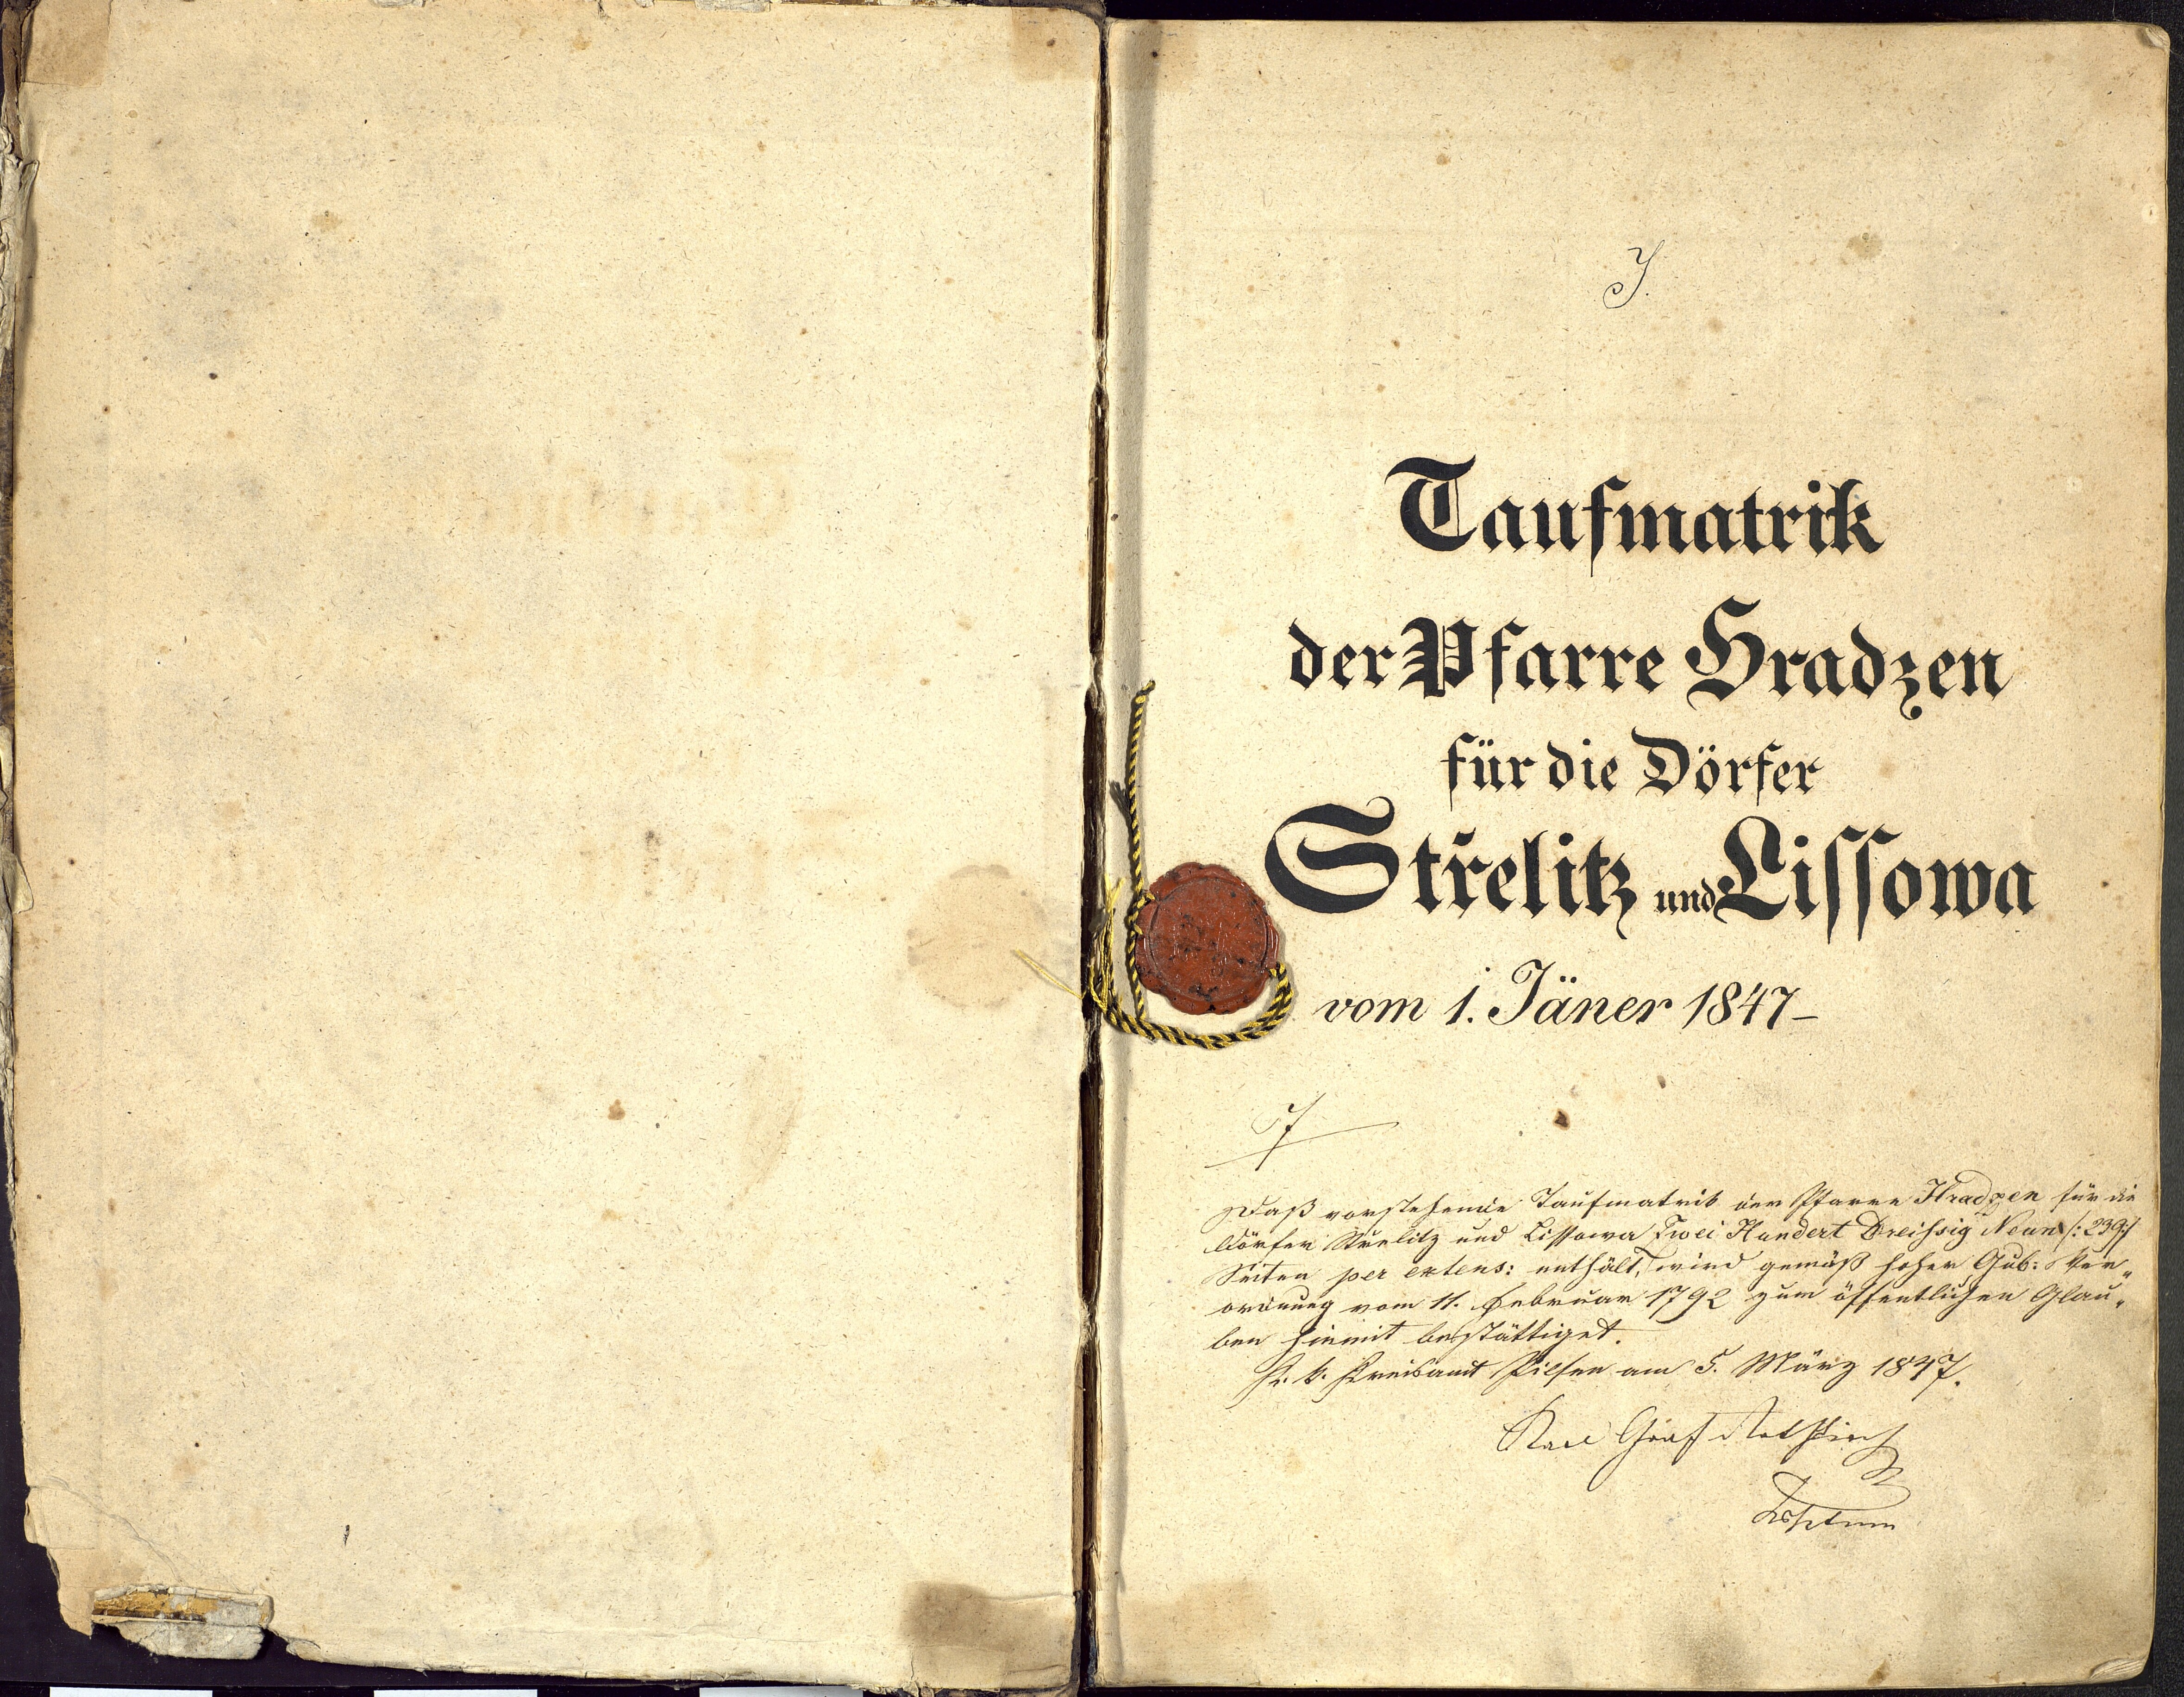 I.
Taufmatrik
der Pfarre Hradzen
für die Dörfer
Střelitz und Lissowa
vom 1. Jäner 1847 –
Daß vorstehende Taufmatrik der Pfarre Hradzen für die
Dörfer Střelitz und Lissowa Zwei Hundert Dreißsig Neun /: 239 :/
Seiten per extens: enthält, wird gemäß hoher Gub: Ver„
ordnung vom 11. Februar 1792 zum öffentlichen Glau„
ben hiemit bestättiget.
K. k. Kreisamt Pilsen am 5. März 1847.
Karl Graf Rothkirch